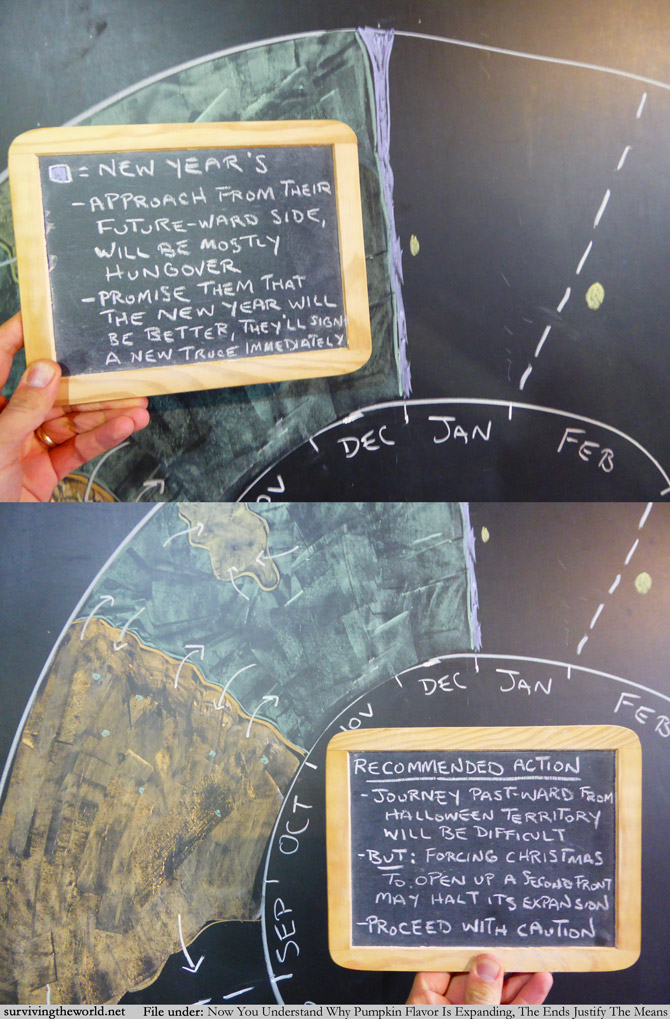 = NEW YEAR'S
- APPROACH FROM THEIR
FUTURE-WARD SIDE,
WILL BE MOSTLY
HUNGOVER
- PROMISE THEM THAT
THE NEW YEAR WILL
BE BETTER, THEY'LL SIGN
A NEW TRUCE IMMEDIATELY
OV DEC JAN FEB
OV DEC JAN FEB
OCT
SEPT
RECOMMENDED ACTION
- JOURNEY PAST-WARD FROM
HALLOWEEN TERRITORY
WILL BE DIFFICULT
- BUT: FORCING CHRISTMAS
TO OPEN UP A SECOND FRONT
MAY HALT ITS EXPANSION
- PROCEED WITH CAUTION
survivingtheworld.net File under: Now You Understand Why Pumpkin Flavor Is Expanding, The Ends Justify The Means